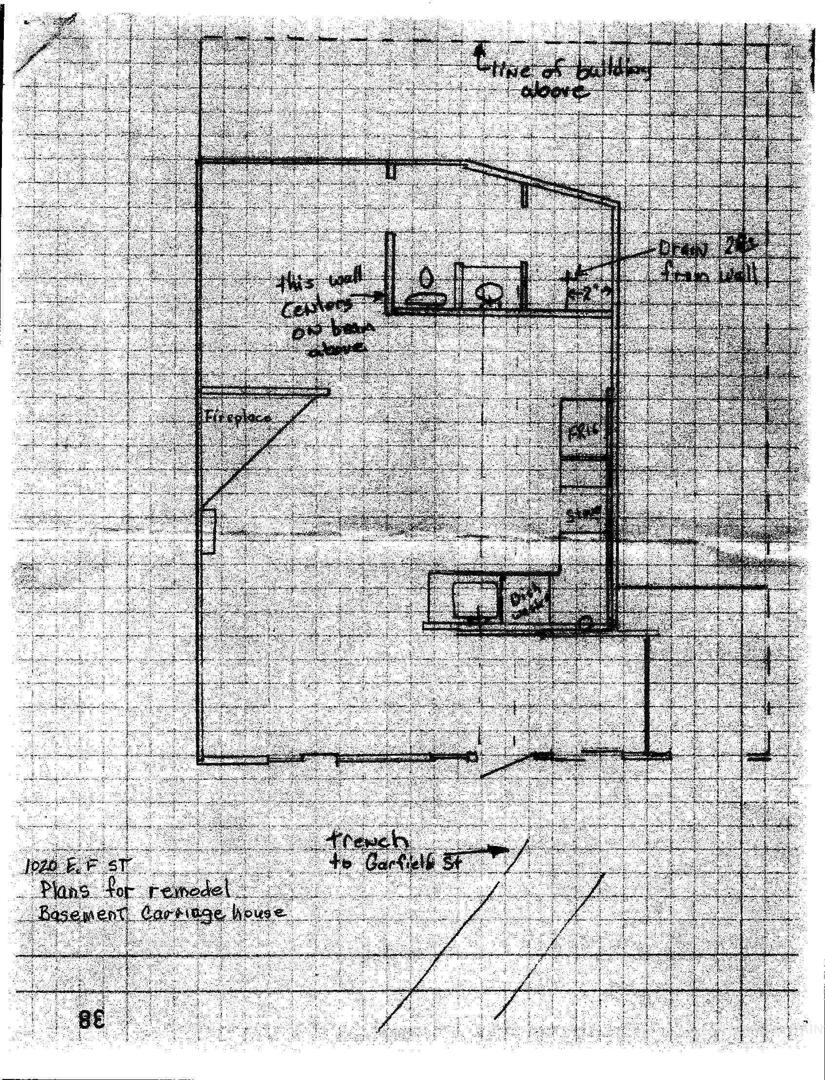 line of building
above
Drain
from wall
this wall
Centers
on beam
above
2"
Fireplace
FRIG
Stove
Dish
washer
trench
to Garfield St
1020 E. F ST
Plans for remodel
Basement Carriage house
38